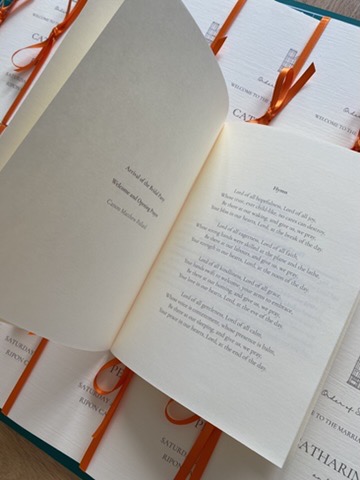 Arrival of the Bridal Party
Welcome and Opening Prayer
Canon Matthew
Hymn
Lord of all hopefulness, Lord of all joy,
Whose trust, ever child-like, no cares can destroy,
Be there at our waking, and give us, we pray,
Your bliss in our hearts, Lord, at the break of the day.
Lord of all eagerness, Lord of all faith,
Whose strong hands were skilled at the plane and the lathe,
Be there at our labours, and give us, we pray,
Your strength in our hearts, Lord, at the noon of the day.
Lord of all kindliness, Lord of all grace,
Your hands swift to welcome, your arms to embrace,
Be there at our homing, and give us, we pray,
Your love in our hearts, Lord, at the eve of the day.
Lord of all gentleness, Lord of all calm,
Whose voice is contentment, whose presence is balm,
Be there at our sleeping, and give us, we pray,
Your peace in our hearts, Lord, at the end of the day.
WELCOME TO THE
CAT
SATURDAY
Order of S
WELCOME TO THE MARRIA
CATHARIN
SATURDAY
RIPON CA
PE
SATURDAY
RIPON CA
Order of S
E TO THE MARRIA
ATHARIN
SATURDAY
RIPON CA